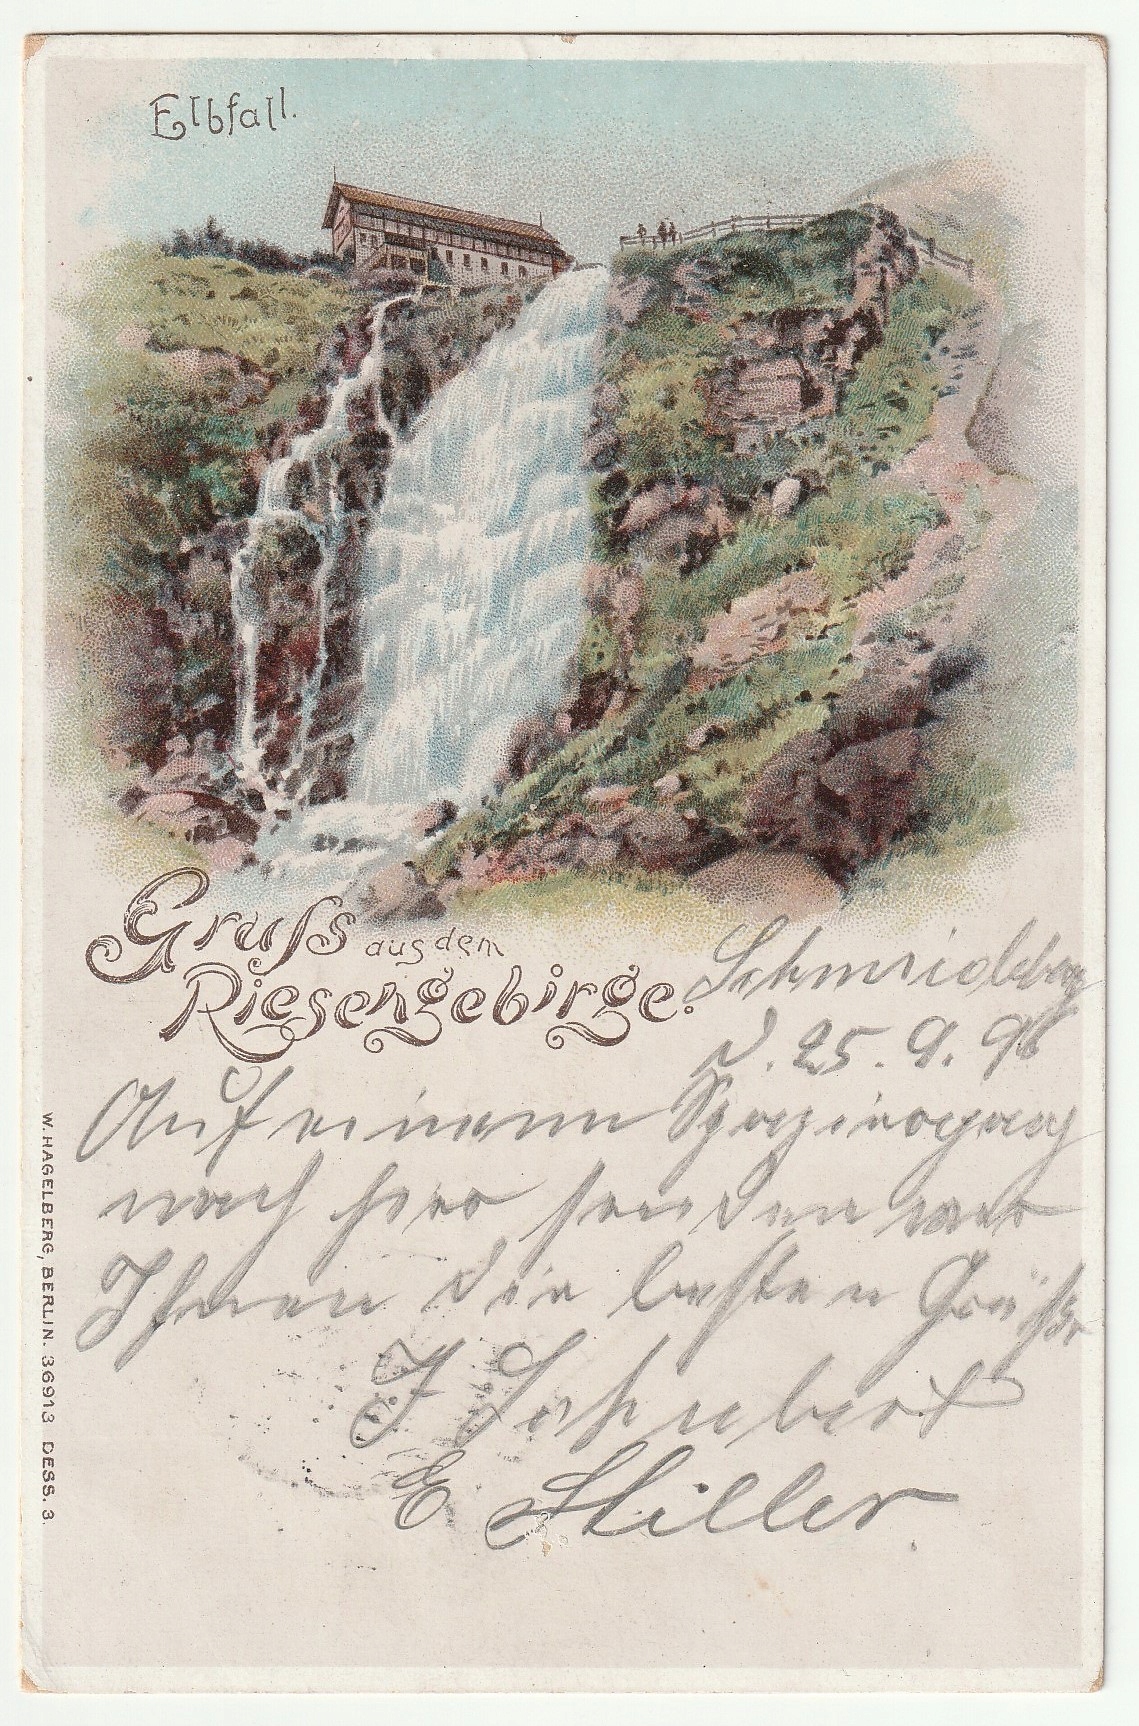 Elbfall.
Gruss aus dem
Riesengebirge.
Schmiedeberg
d. 25. 9. 98
Auf einem Spaziergang
nach hier senden wir
Ihnen die besten Grüße
J Schubert
E Stiller.
W. HAGELBERG, BERLIN. 36913 DESS. 3.